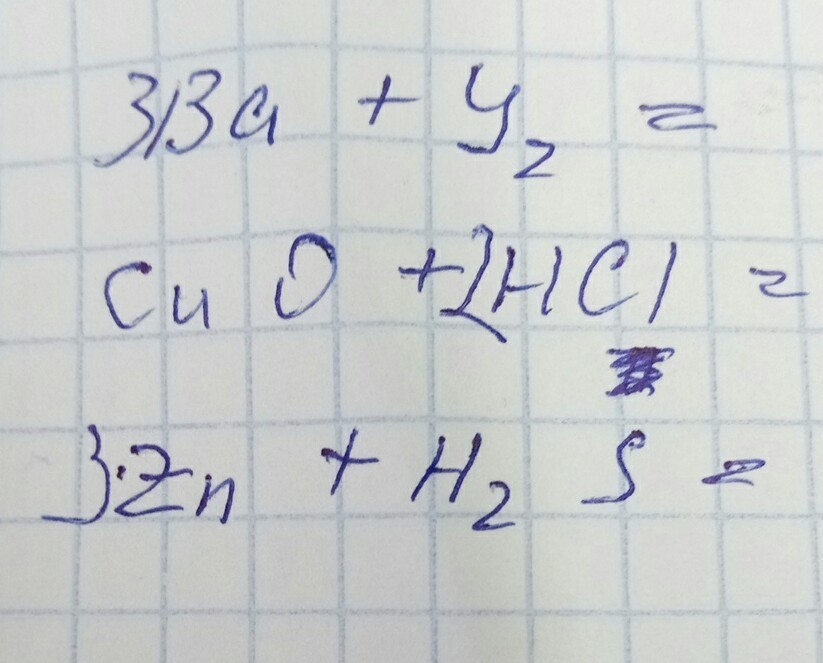 3Ba + У₂ =
CuO + 2HCl =
3·Zn + H₂S =